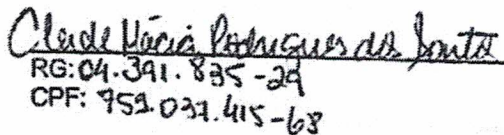 Cleide Márcia Rodrigues dos Santos
RG: 04.391.835-29
CPF: 751.037.415-68